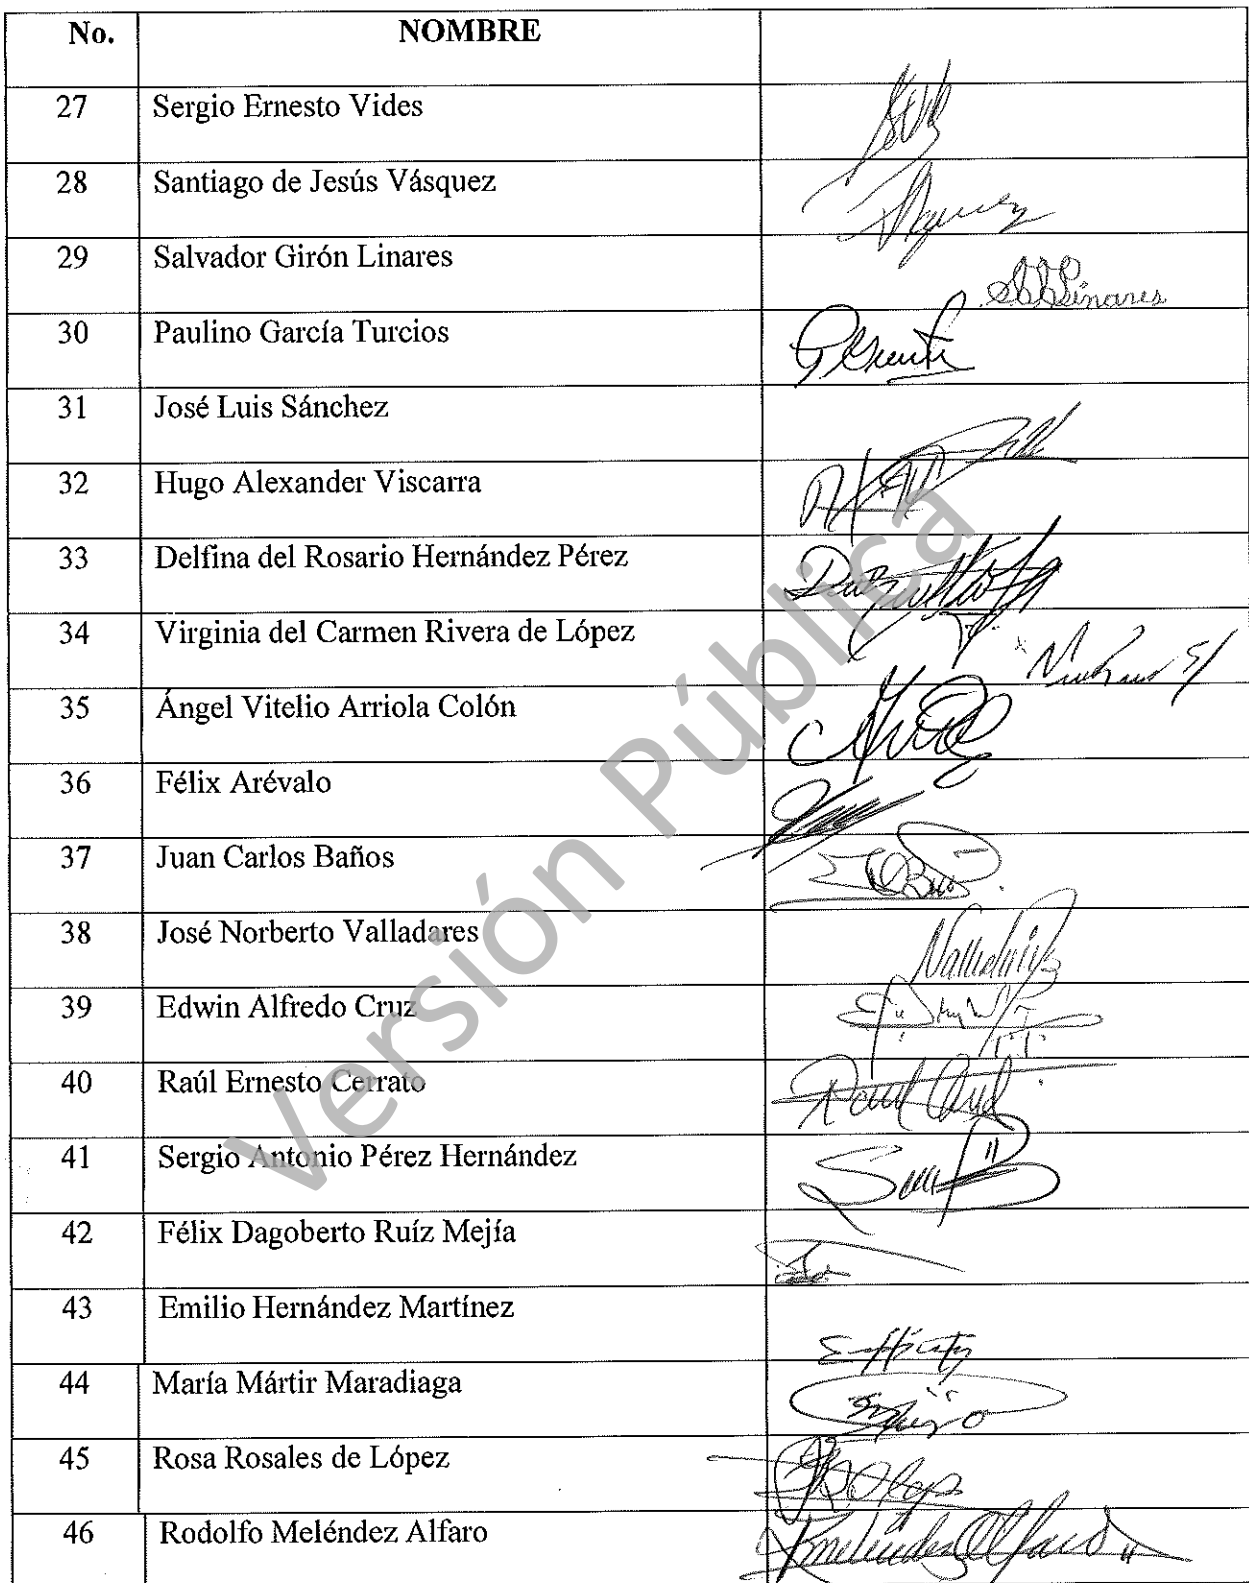 No. NOMBRE
27 Sergio Ernesto Vides
28 Santiago de Jesús Vásquez
29 Salvador Girón Linares
30 Paulino García Turcios
31 José Luis Sánchez
32 Hugo Alexander Viscarra
33 Delfina del Rosario Hernández Pérez
34 Virginia del Carmen Rivera de López
35 Ángel Vitelio Arriola Colón
36 Félix Arévalo
37 Juan Carlos Baños
38 José Norberto Valladares
39 Edwin Alfredo Cruz
40 Raúl Ernesto Cerrato
41 Sergio Antonio Pérez Hernández
42 Félix Dagoberto Ruíz Mejía
43 Emilio Hernández Martínez
44 María Mártir Maradiaga
45 Rosa Rosales de López
46 Rodolfo Meléndez Alfaro
Versión Pública